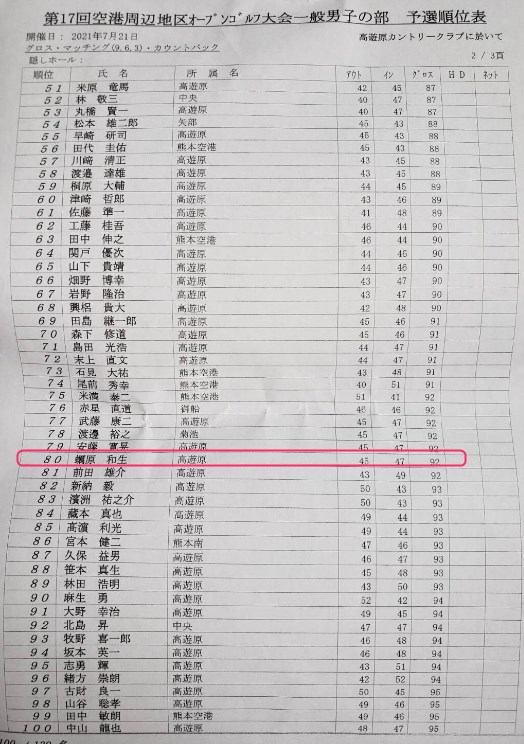 第17回空港周辺地区ｵｰﾌﾟﾝｺﾞﾙﾌ大会一般男子の部 予選順位表
開催日： 2021年7月21日 高遊原カントリークラブに於いて
グロス・マッチング(9,6,3)・カウントバック
隠しホール： 2 / 3頁
順位 氏 名 所 属 名 ｱｳﾄ イン ｸﾞﾛｽ HD ネット
51 米原 竜馬 高遊原 42 45 87
52 林 敬三 中央 40 47 87
53 丸橋 賢一 高遊原 40 47 87
54 松本 雄二郎 矢部 45 43 88
55 早崎 研司 高遊原 45 43 88
56 田代 圭佑 熊本空港 45 43 88
57 川崎 清正 高遊原 43 45 88
58 渡邉 達雄 高遊原 43 45 88
59 桐原 大輔 高遊原 44 45 89
60 津崎 哲郎 高遊原 43 46 89
61 佐藤 準一 高遊原 41 48 89
62 工藤 桂吾 高遊原 46 44 90
63 田中 伸之 熊本空港 46 44 90
64 関戸 優次 高遊原 44 46 90
65 山下 貴靖 高遊原 44 46 90
66 畑野 博幸 高遊原 43 47 90
67 岩野 隆治 高遊原 43 47 90
68 興梠 貴大 高遊原 42 48 90
69 田島 継一郎 高遊原 45 46 91
70 森下 修道 高遊原 45 46 91
71 島田 光浩 高遊原 44 47 91
72 末上 直文 高遊原 44 47 91
73 石見 大祐 熊本空港 43 48 91
74 尾前 秀幸 熊本空港 40 51 91
75 米満 泰二 熊本空港 51 41 92
76 赤星 直道 御船 46 46 92
77 武藤 康二 高遊原 45 47 92
78 渡邊 裕之 菊池 45 47 92
79 安藤 高遊原 45 47 92
80 蠣原 和生 高遊原 45 47 92
81 前田 雄介 高遊原 43 49 92
82 新納 毅 高遊原 50 43 93
83 濱洲 祐之介 高遊原 50 43 93
84 藏本 真也 高遊原 49 44 93
85 高濵 利光 高遊原 49 44 93
86 宮本 健二 熊本南 47 46 93
87 久保 益男 高遊原 47 46 93
88 笹本 真生 高遊原 45 48 93
89 林田 浩明 高遊原 43 50 93
90 麻生 勇 高遊原 52 42 94
91 大野 幸治 高遊原 49 45 94
92 北島 昇 中央 47 47 94
93 牧野 喜一郎 高遊原 46 48 94
94 坂本 英一 高遊原 46 48 94
95 志勇 輝 高遊原 43 51 94
96 緒方 崇朗 高遊原 42 52 94
97 古財 良一 高遊原 50 45 95
98 山谷 聡孝 高遊原 49 46 95
99 田中 敏朗 熊本空港 49 46 95
100 中山 龍也 高遊原 48 47 95